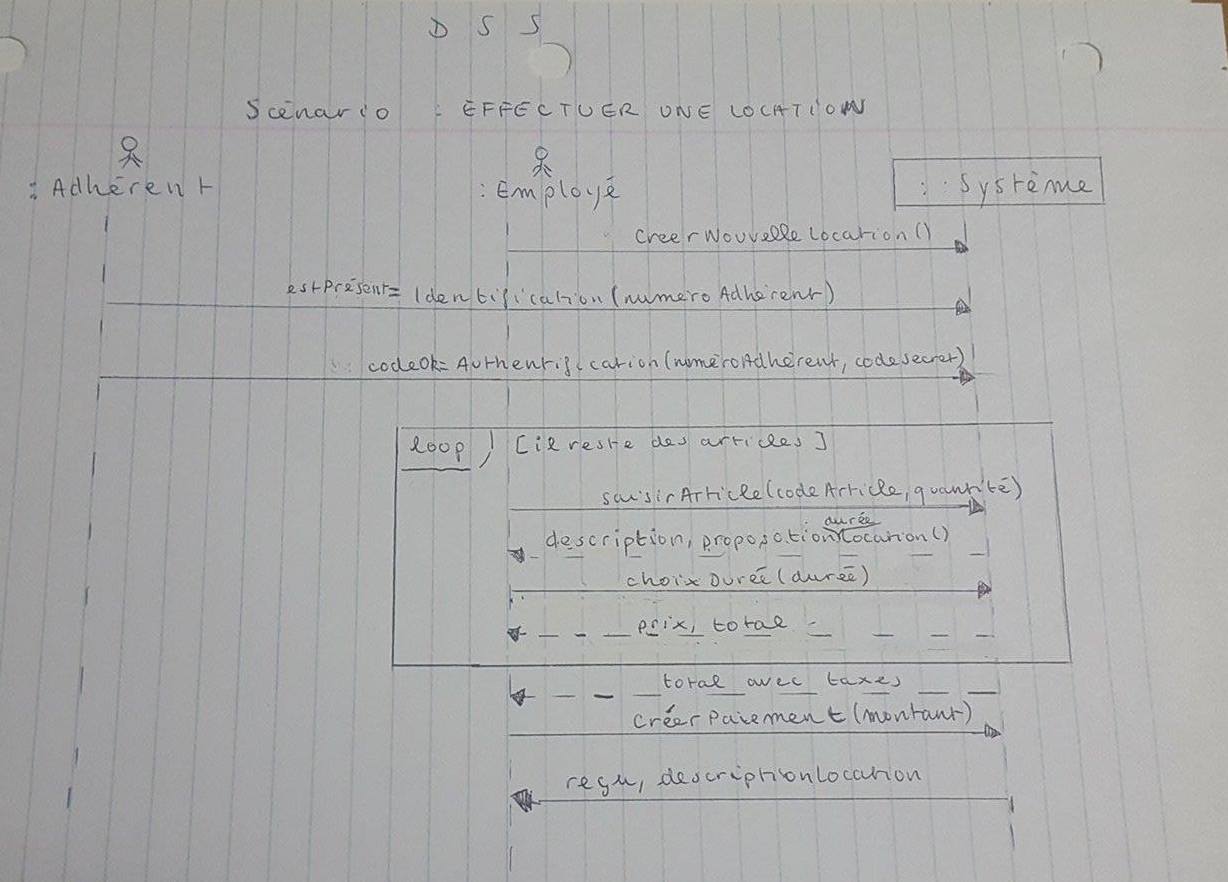 DSS
Scénario : EFFECTUER UNE LOCATION
: Adhérent
: Employé
: Système
CreerNouvelleLocation()
estPrésent= Identification(numéroAdhérent)
codeOk= Authentification(numéroAdhérent, codesecret)
loop [il reste des articles]
saisirArticle(codeArticle, quantité)
durée
description, propositionLocation()
choixDurée(durée)
prix, total
total avec taxes
CréerPaiement(montant)
reçu, descriptionLocation